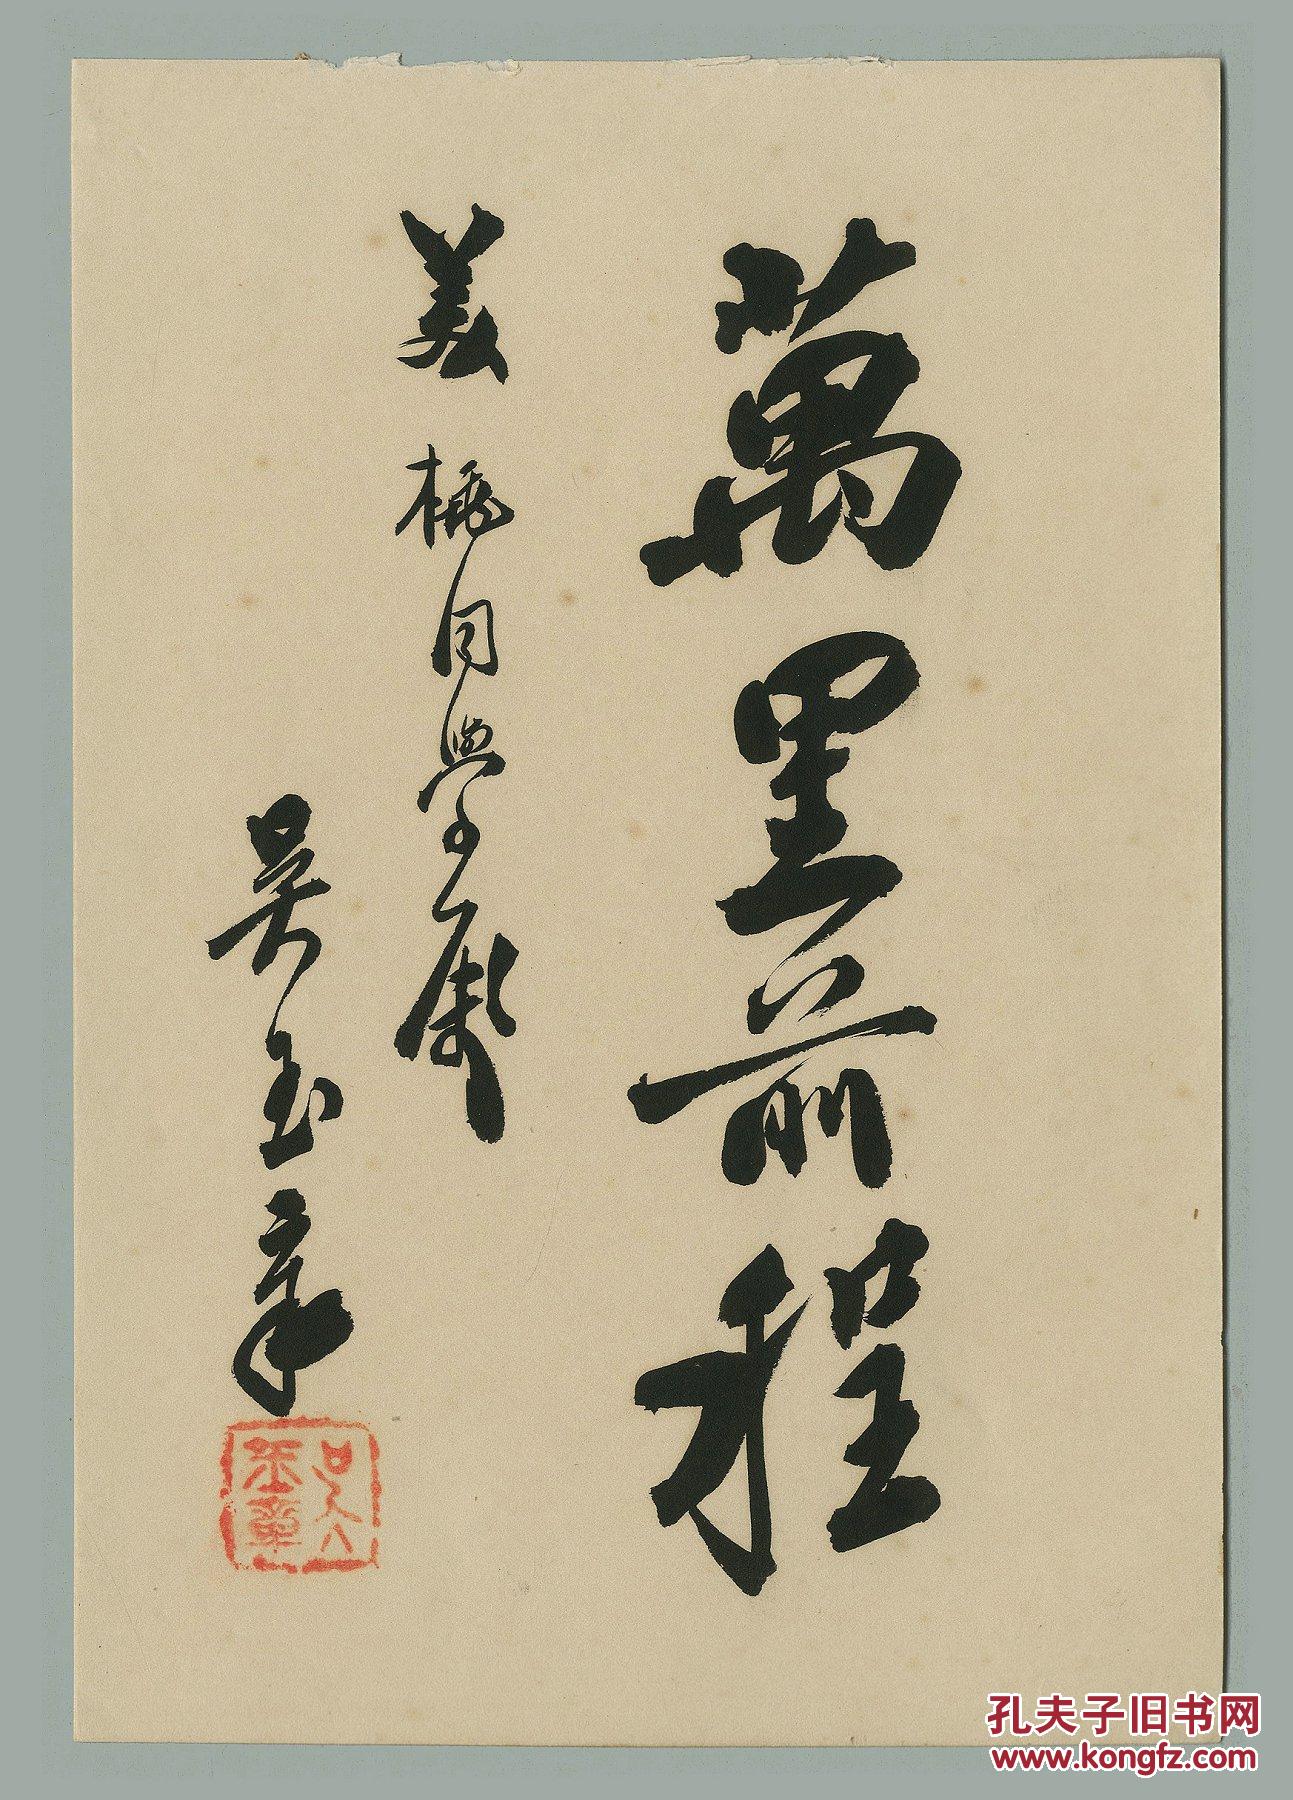 萬里前程
美梅同學屬
吴玉章
吴玉章
孔夫子旧书网
www.kongfz.com